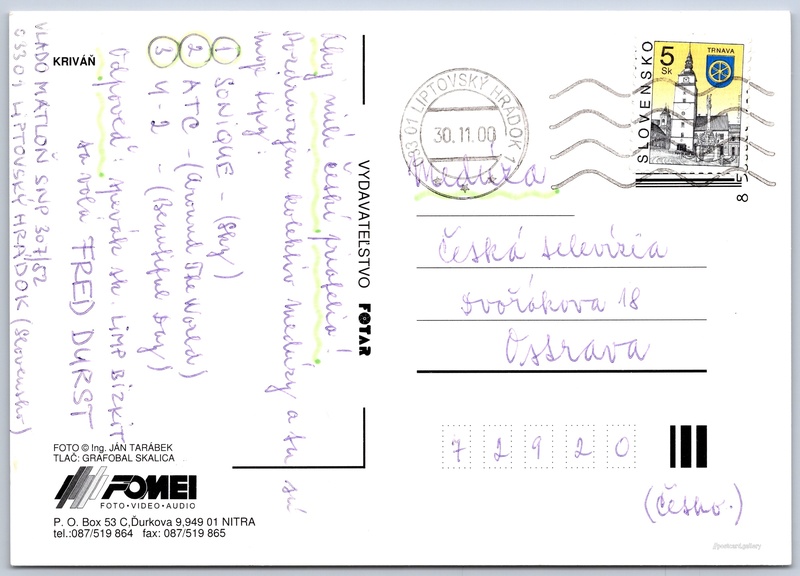 KRIVÁŇ
Ahoj milí českí priatelia!
Pozdravujem kolektív Medúzy a tu sú
moje tipy:
1 SONIQUE - (Sky)
2 ATC - (Around The World)
3 U-2 - (Beautiful Day)
Odpoveď: spevák sk. LIMP BIZKIT
sa volá FRED DURST
VLADO MATLOŇ SNP 307/82
03301 LIPTOVSKÝ HRÁDOK (Slovensko)
VYDAVATEĽSTVO FOTAR
FOTO © Ing. JÁN TARÁBEK
TLAČ: GRAFOBAL SKALICA
FOMEI
FOTO·VIDEO·AUDIO
P. O. Box 53 C,Ďurkova 9,949 01 NITRA
tel.:087/519 864 fax: 087/519 865
033 01 LIPTOVSKÝ HRÁDOK 1
30.11.00
SLOVENSKO
5 Sk
TRNAVA
Medúza
Česká televízia
Dvořákova 18
Ostrava
72920
(Česko.)
//postcard.gallery